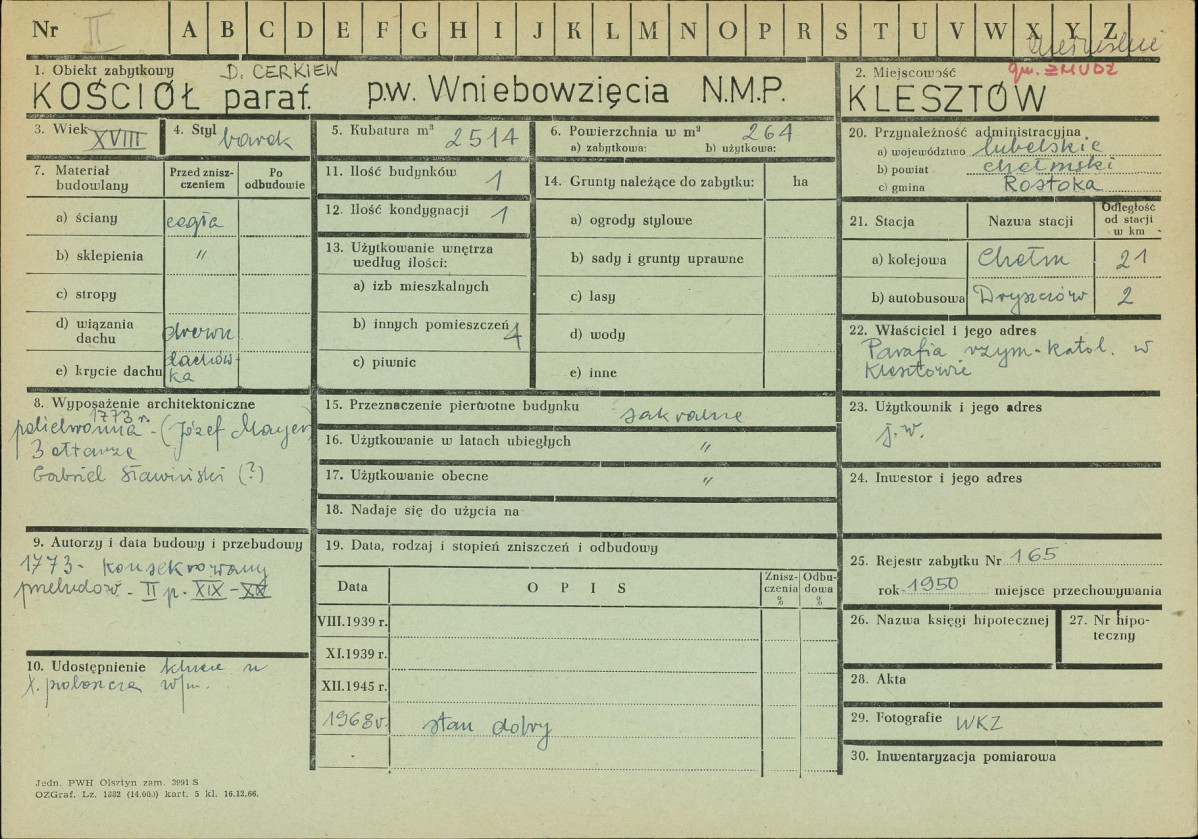 Nr II A B C D E F G H I J K L M N O P R S T U V W X Y Z
1. Obiekt zabytkowy D. CERKIEW
KOŚCIÓŁ paraf. p.w. Wniebowzięcia N.M.P.
2. Miejscowość gm. ŻMUDŹ
KLESZTÓW
3. Wiek XVIII
4. Styl barok
5. Kubatura m³ 2514
6. Powierzchnia w m² 264
a) zabytkowa: b) użytkowa:
7. Materiał budowlany
Przed znisz-
czeniem
Po
odbudowie
a) ściany cegła
b) sklepienia "
c) stropy
d) wiązania
dachu drewn
e) krycie dachu dachów-
ka
8. Wyposażenie architektoniczne
1773 r.
polichromia - (Józef Mayer)
3 ołtarze
Gabriel Sławiński (?)
9. Autorzy i data budowy i przebudowy
1773 - konsekrowany
przebudow. - II p. XIX - XX
10. Udostępnienie klucze u
X. proboszcza w/m.
11. Ilość budynków 1
12. Ilość kondygnacji 1
13. Użytkowanie wnętrza
według ilości:
a) izb mieszkalnych
b) innych pomieszczeń 4
c) piwnic
14. Grunty należące do zabytku: ha
a) ogrody stylowe
b) sady i grunty uprawne
c) lasy
d) wody
e) inne
15. Przeznaczenie pierwotne budynku sakralne
16. Użytkowanie w latach ubiegłych "
17. Użytkowanie obecne "
18. Nadaje się do użycia na
19. Data, rodzaj i stopień zniszczeń i odbudowy
Data O P I S Znisz-
czenia
% Odbu-
dowa
%
VIII.1939 r.
XI.1939 r.
XII.1945 r.
1968 r. stan dobry
20. Przynależność administracyjna
a) województwo lubelskie
b) powiat chełmski
c) gmina Rostoka
21. Stacja Nazwa stacji Odległość
od stacji
w km
a) kolejowa Chełm 21
b) autobusowa Dryszczów 2
22. Właściciel i jego adres
Parafia rzym-katol. w
Klesztowie
23. Użytkownik i jego adres
j.w.
24. Inwestor i jego adres
25. Rejestr zabytku Nr 165
rok 1950 miejsce przechowywania
26. Nazwa księgi hipotecznej
27. Nr hipo-
teczny
28. Akta
29. Fotografie WKZ
30. Inwentaryzacja pomiarowa
Jedn. PWH Olsztyn zam. 3991 S
OZGraf. Lz. 1882 (14.000) kart. 5 kl. 16.12.66.